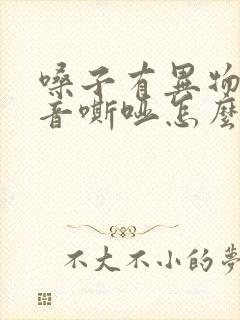 嗓子有異物
音嘶啞怎麼
不大不小的夢